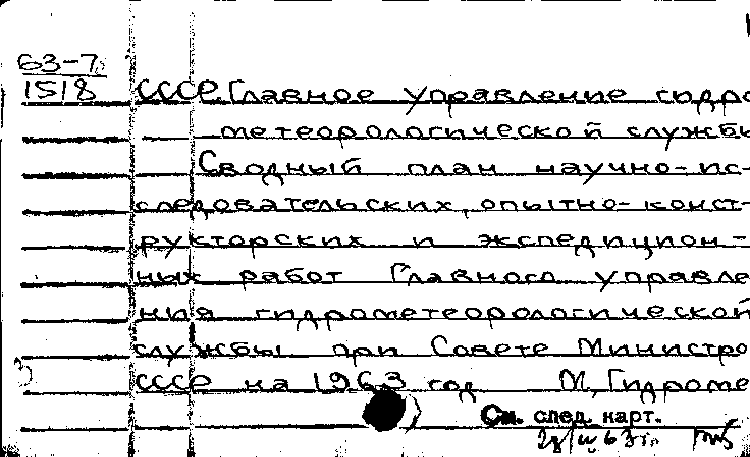 63-7
1518
СССР. Главное управление гидро
метеорологической службы
Сводный план научно-ис-
следовательских, опытно-конст-
рукторских и экспедицион-
ных работ Главного управле
ния гидрометеорологической
службы при Совете Министро
СССР на 1963 год М, Гидроме
См. след. карт.